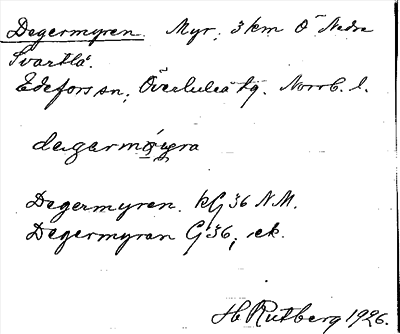 Degermyren. Myr, 3 km Ö Nedre
Svartlå.
Edefors sn, Överluleå tg. Norrb. l.
Degermyren. kG 36 NM.
Degermyran G 36, ek.
H Rutberg 1926.